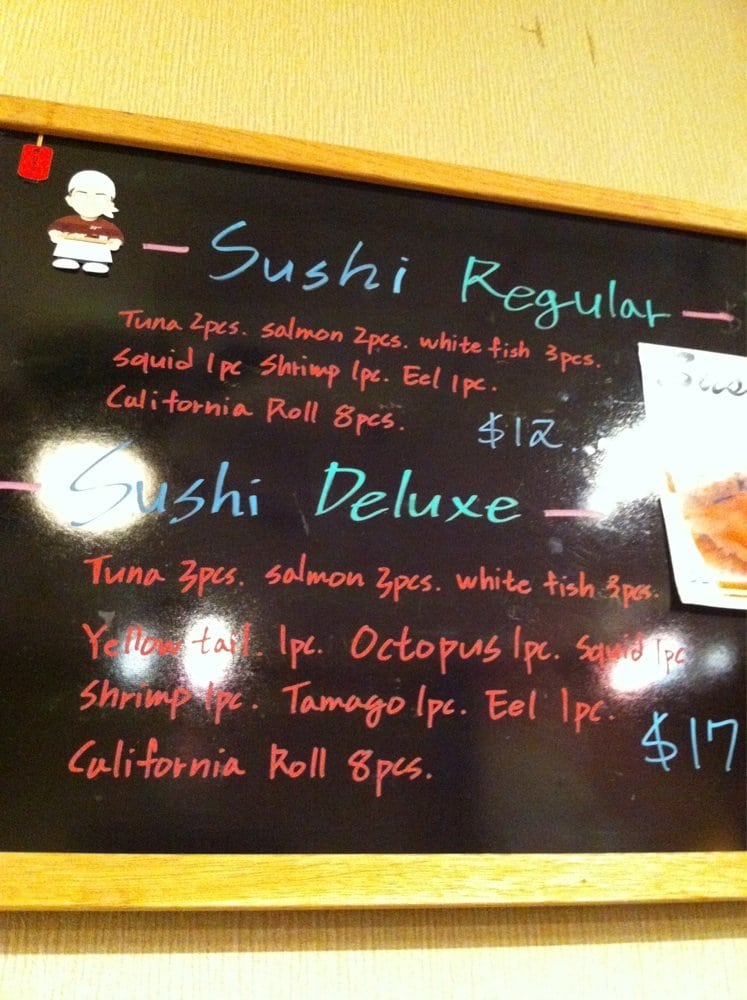 Sushi Regular
Tuna 2pcs. salmon 2pcs. white fish 3pcs.
squid 1pc shrimp 1pc. Eel 1pc.
California Roll 8pcs.
$12
Sushi Deluxe
Tuna 3pcs. salmon 3pcs. white fish 3pcs.
Yellow tail. 1pc. Octopus 1pc. squid 1pc
shrimp 1pc. Tamago 1pc. Eel 1pc.
$17
California Roll 8pcs.